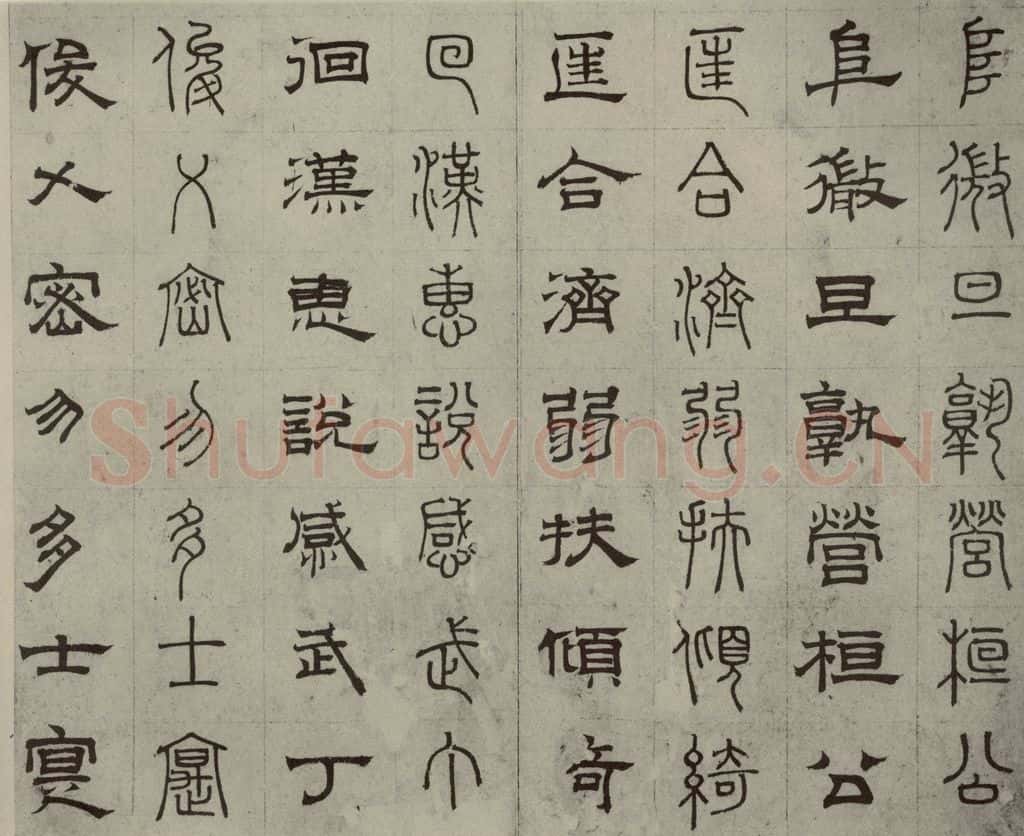 阜微旦孰營桓公
阜微旦孰營桓公
匡合濟弱扶傾綺
匡合濟弱扶傾奇
回漢惠說感武丁
徊漢惠說感武丁
俊乂密勿多士寔
俊乂密勿多士寔
Shufawang.CN